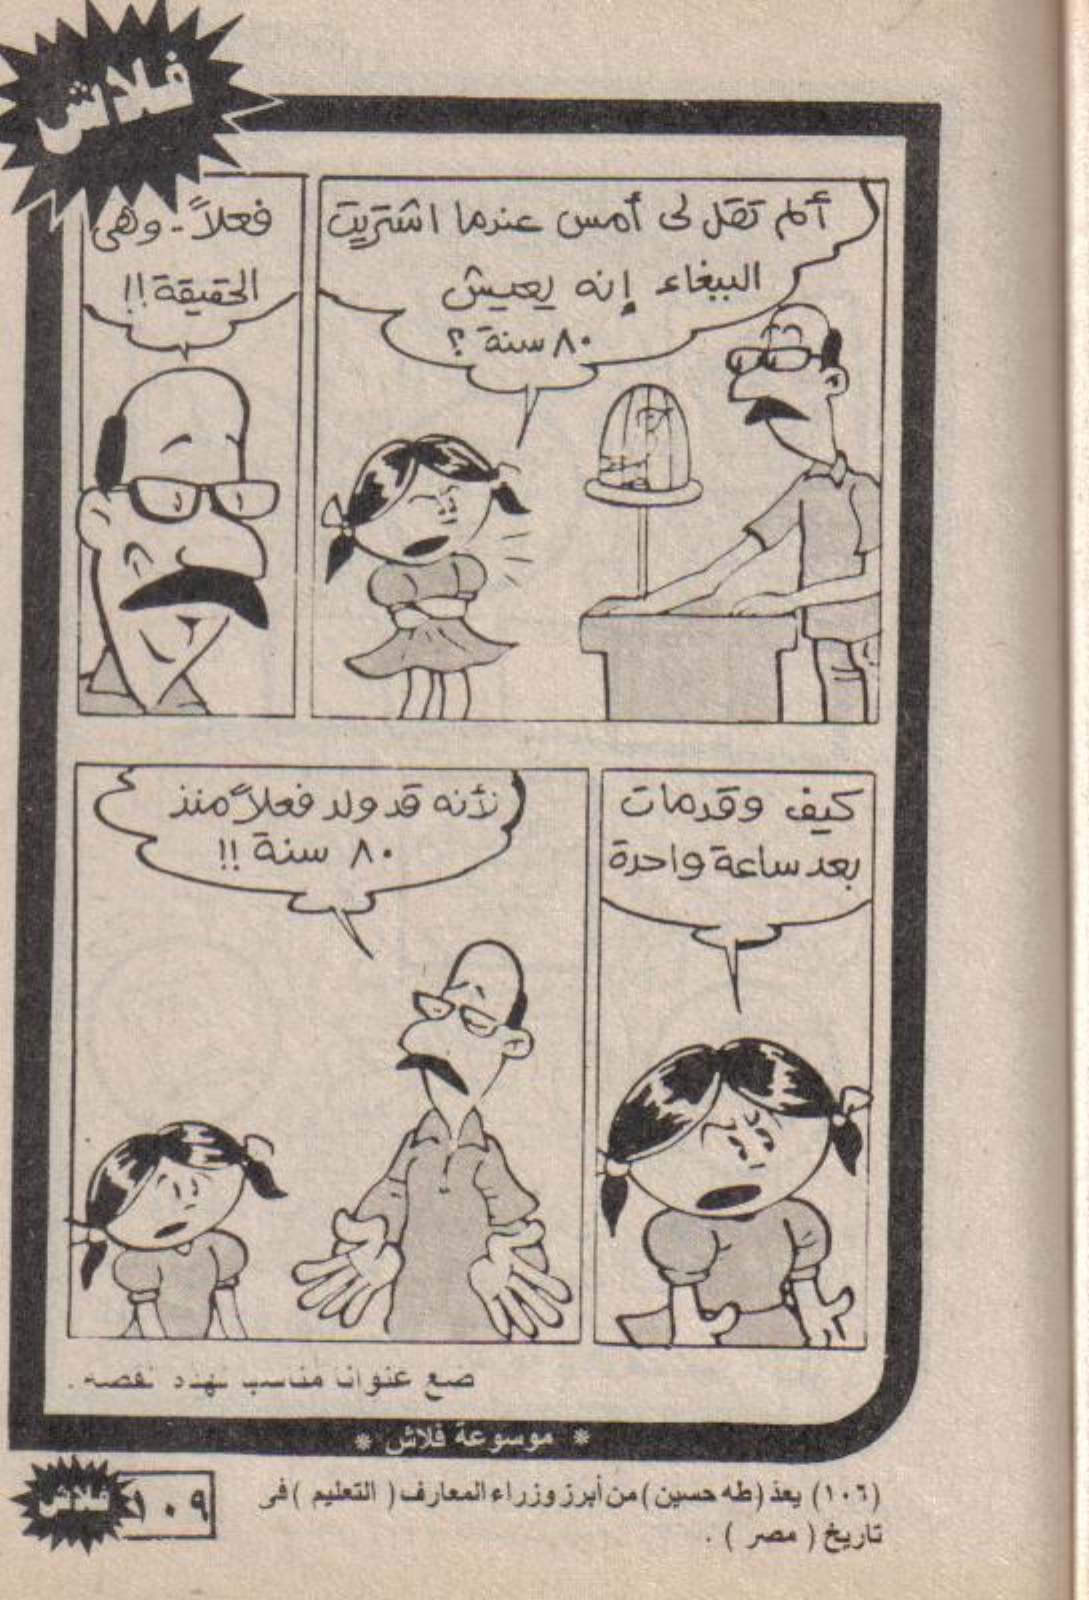 فلاش
ألم تقل لى أمس عندما اشتريت
الببغاء إنه يعيش
٨٠ سنة ؟
فعلاً - وهى
الحقيقة !!
كيف وقد مات
بعد ساعة واحدة
لأنه قد ولد فعلاً منذ
٨٠ سنة !!
ضع عنوانا مناسب لهذه القصة .
* موسوعة فلاش *
(١٠٦) يعد (طه حسين) من أبرز وزراء المعارف ( التعليم ) فى
تاريخ ( مصر ) .
١٠٩
فلاش